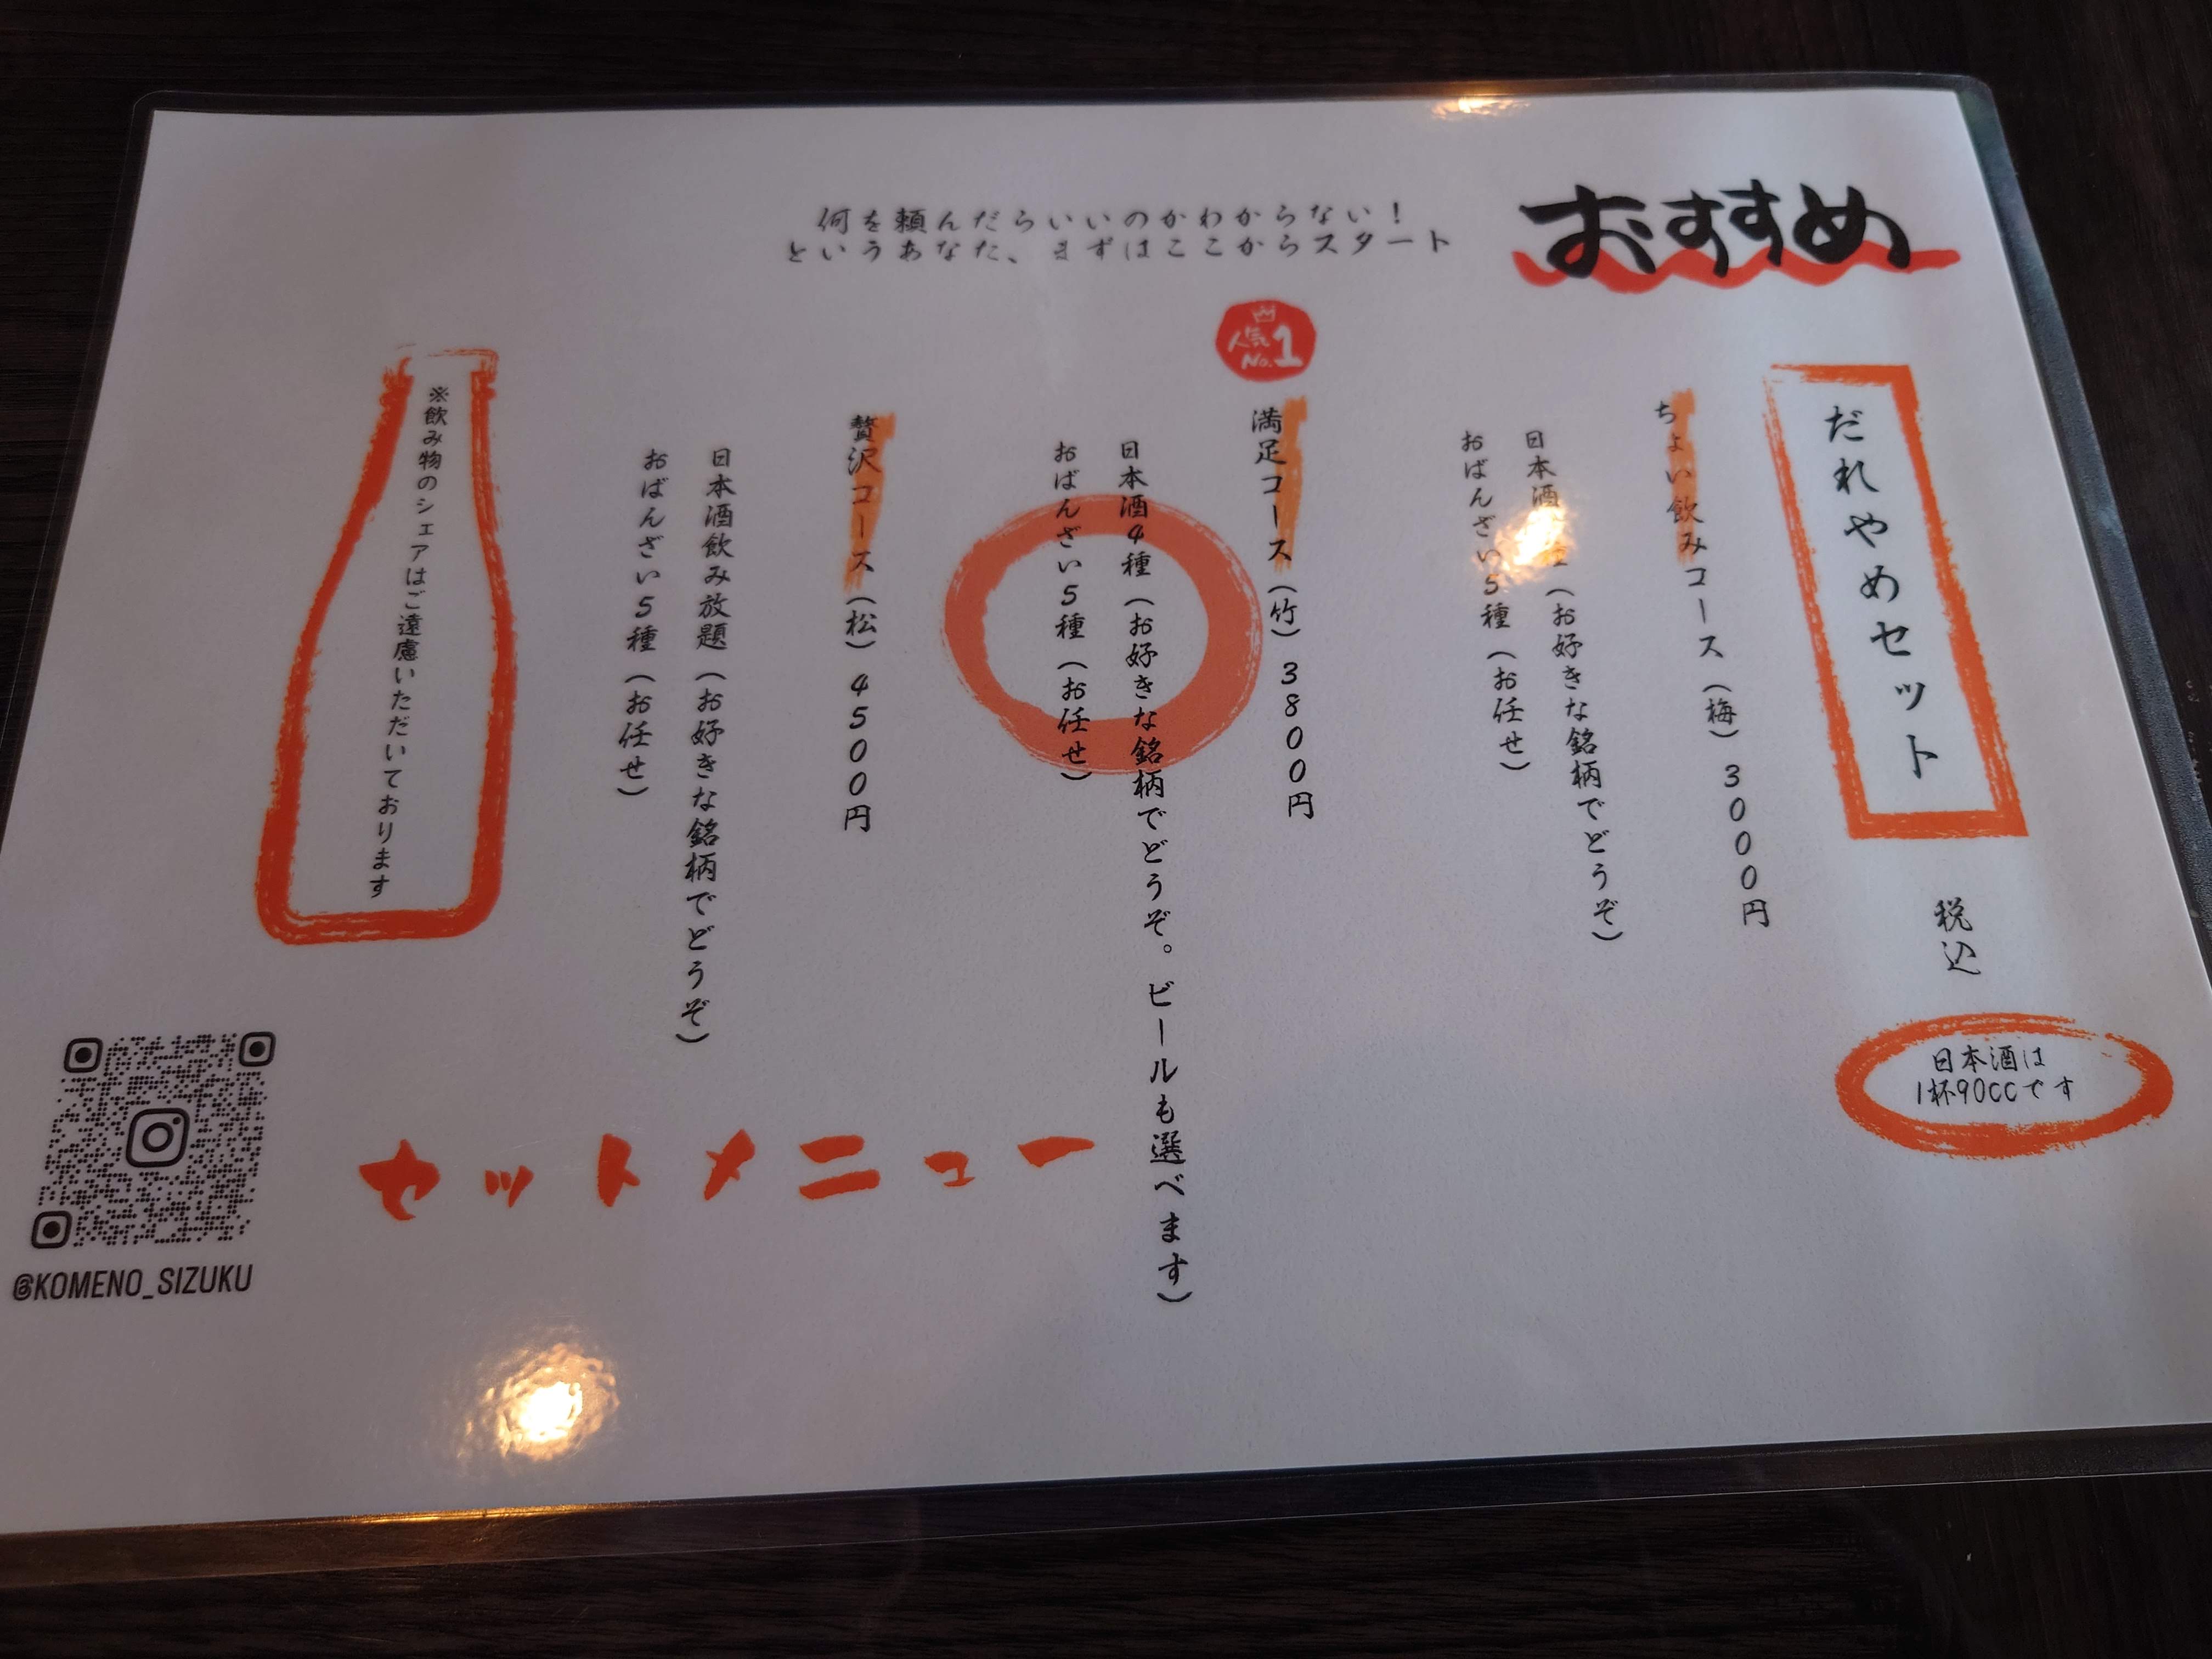 おすすめ
何を頼んだらいいのかわからない！
というあなた、まずはここからスタート
だれやめセット
税込
日本酒は
1杯90CCです
ちょい飲みコース（梅）3000円
日本酒（お好きな銘柄でどうぞ）
おばんざい5種（お任せ）
人気
No.1
満足コース（竹）3800円
日本酒4種（お好きな銘柄でどうぞ。ビールも選べます）
おばんざい5種（お任せ）
贅沢コース（松）4500円
日本酒飲み放題（お好きな銘柄でどうぞ）
おばんざい5種（お任せ）
※飲み物のシェアはご遠慮いただいております
セットメニュー
@KOMENO_SIZUKU